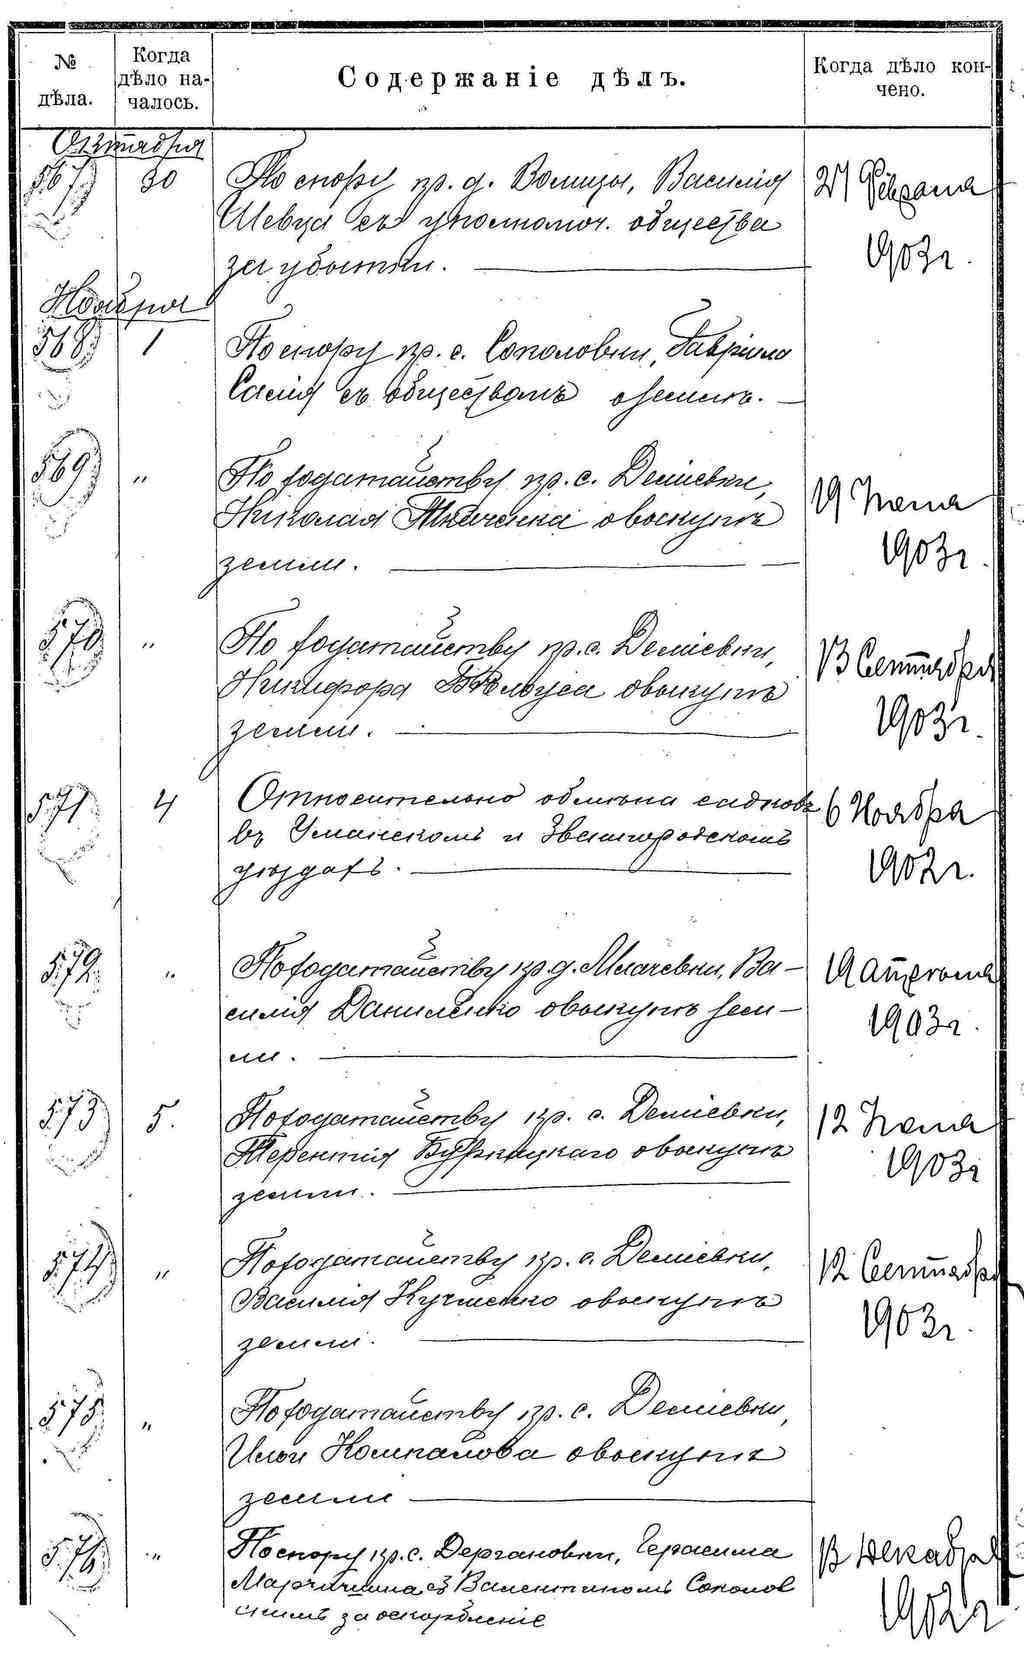 № дѣла.
Когда дѣло на-
чалось.
Содержаніе дѣлъ.
Когда дѣло кон-
чено.
Октября
567 30 По спору кр. д. Волицы, Василія 27 Февраля
Шевца съ уполномоч. общества
за убытки. 1903 г.
Ноября
568 1 По спору кр. с. Соколовки, Гавріила
Салія съ обществомъ о землѣ.
569 " По ходатайству кр. с. Деміевки, 19 Іюля
Николая Ткаченка о выкупѣ
земли. 1903 г.
570 " По ходатайству кр. с. Деміевки, 13 Сентября
Никифора Бѣлоуса о выкупѣ
земли. 1903 г.
571 4 Относительно обмѣна садковъ 6 Ноября
въ Уманскомъ и Звенигородскомъ
уѣздахъ. 1902 г.
572 " По ходатайству кр. д. Ва-
силія Даниленко о выкупѣ зем-
ли. 19 Апрѣля 1903 г.
573 5. По ходатайству кр. с. Деміевки, 12 Іюля
Терентія о выкупѣ
земли. 1903 г.
574 " По ходатайству кр. с. Деміевки, 12 Сентября
Василія Кучменко о выкупѣ
земли. 1903 г.
575 " По ходатайству кр. с. Деміевки,
Ильи о выкупѣ
земли
576 " По спору кр. с. Дергановки, Герасима 13 Декабря
съ Валентиномъ Соколов
скимъ за оскорбленіе 1902 г.